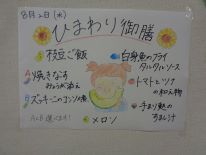 8月2日(水)
ひまわり御膳
枝豆ご飯
A 焼きなす
みょうが添え
B ズッキーニのコンソメ煮
A or B 選べます!
メロン
白身魚のフライ
タルタルソース
トマトとツナ
の和え物
手まり麩の
すまし汁